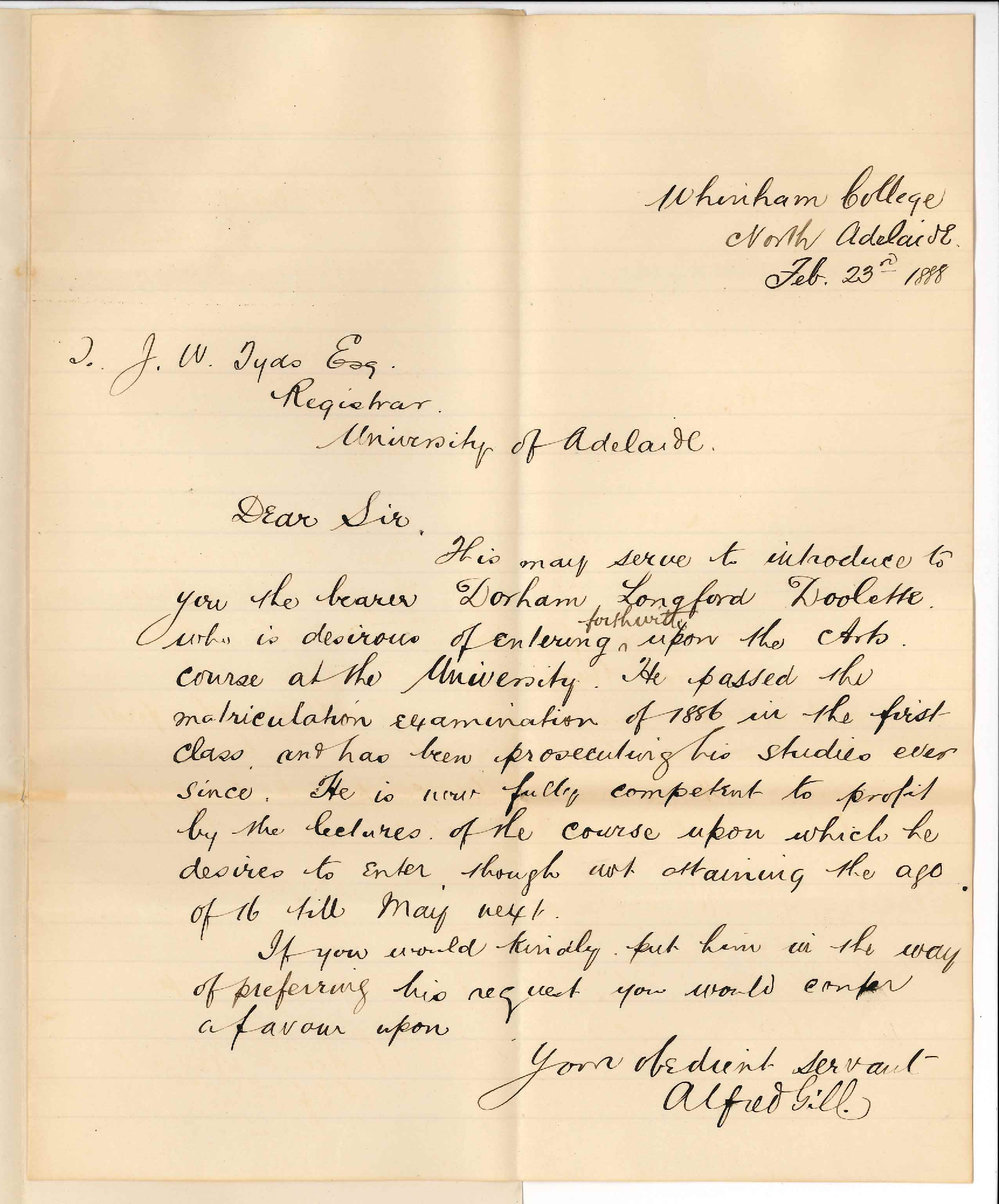 Whinham College
North Adelaide.
Feb. 23rd 1888
J. W. Tyas Esq.
Registrar.
University of Adelaide.
Dear Sir,
This may serve to introduce to
you the bearer Dorham Longford Doolette.
who is desirous of entering forthwith upon the Arts.
course at the University. He passed the
matriculation examination of 1886 in the first
class, and has been prosecuting his studies ever
since. He is now fully competent to profit
by the lectures of the course upon which he
desires to enter, though not attaining the age
of 16 till May next.
If you would kindly put him in the way
of preferring his request you would confer
a favour upon
Your obedient servant
Alfred Gill.